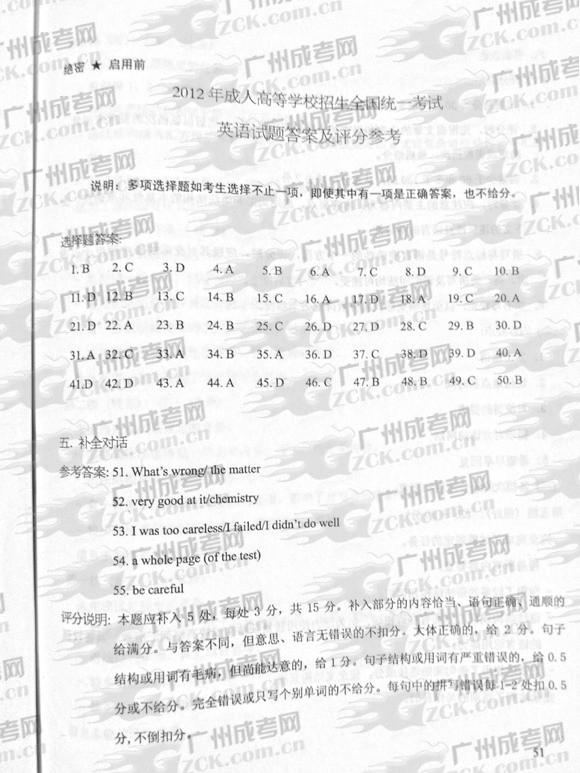 绝密 ★ 启用前
2012年成人高等学校招生全国统一考试
英语试题答案及评分参考
说明：多项选择题如考生选择不止一项，即使其中有一项是正确答案，也不给分。
选择题答案:
1. B 2. C 3. D 4. A 5. B 6. A 7. C 8. D 9. C 10. B
11. D 12. B 13. C 14. B 15. C 16. A 17. D 18. A 19. C 20. A
21. D 22. A 23. B 24. B 25. C 26. D 27. D 28. C 29. B 30. D
31. A 32. C 33. A 34. B 35. A 36. D 37. C 38. D 39. D 40. A
41. D 42. D 43. A 44. A 45. D 46. C 47. B 48. B 49. C 50. B
五. 补全对话
参考答案: 51. What's wrong/ the matter
52. very good at it/chemistry
53. I was too careless/I failed/I didn't do well
54. a whole page (of the test)
55. be careful
评分说明: 本题应补入 5 处，每处 3 分，共 15 分。补入部分的内容恰当、语句正确、通顺的
给满分。与答案不同，但意思、语言无错误的不扣分。大体正确的，给 2 分。句子
结构或用词有毛病，但尚能达意的，给 1 分。句子结构或用词有严重错误的，给 0.5
分或不给分。完全错误或只写个别单词的不给分。每句中的拼写错误每 1-2 处扣 0.5
分, 不倒扣分。
51
广州成考网
GZCK.com.cn